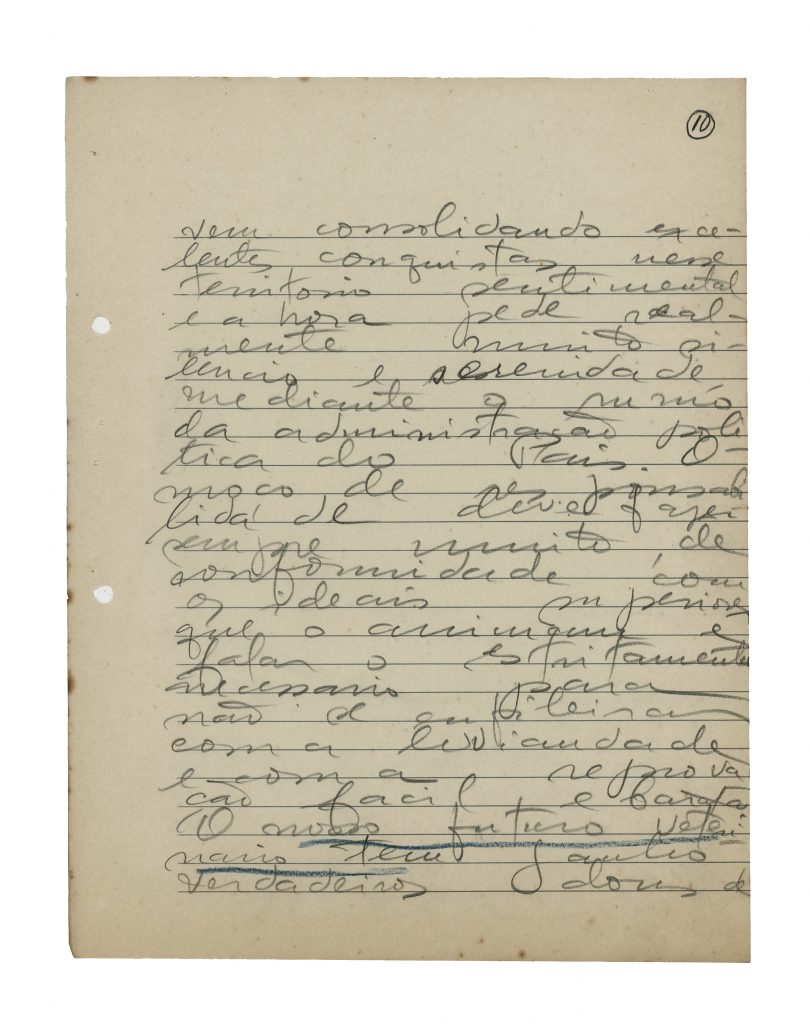 10
vem consolidando exce-
lentes conquistas nesse
territorio sentimental
e a hora pede real-
mente muito si-
lencio e serenidade
mediante o
da administração poli
tica do Pais. O
moço de responsabi
lidade deve fazer
sempre muito de
conformidade com
os ideais superiores
que o animam e
falar o estritamente
necessario para
não enfileirar
com a leviandade
e com a reprova
ção facil e barata
O nosso futuro veteri
nario tem ganho
verdadeiros dons de